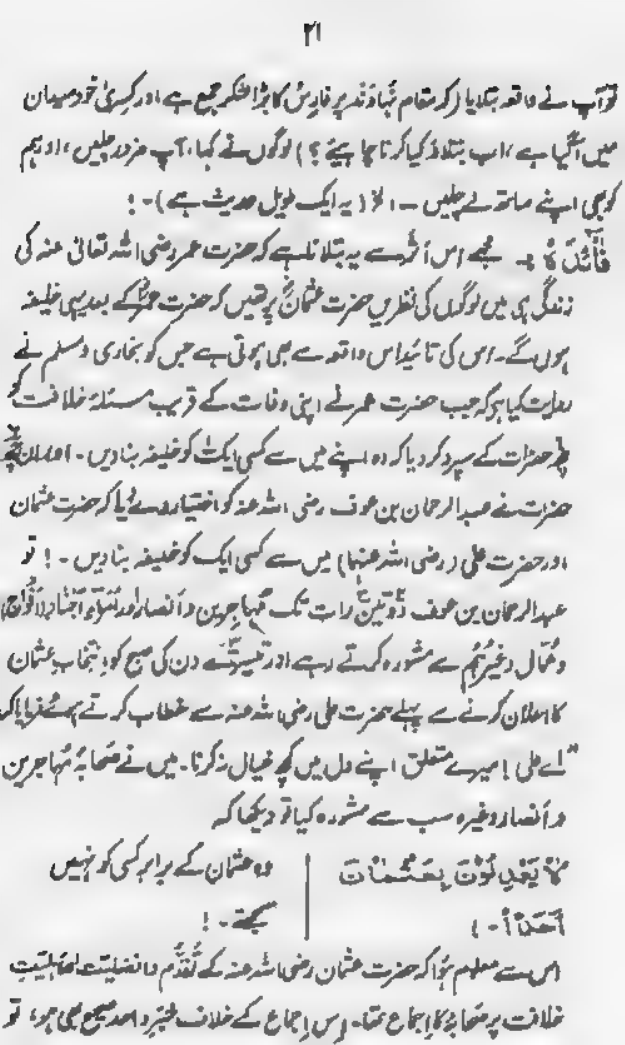 ۲۱
تو آپ نے واقعہ بتلایا (کہ مقام نُہاوَنْد پر فارِسْ کا بڑا لشکر جمع ہے اور کِسریٰ خود میدان
میں آگیا ہے، اب بتلاؤ کیا کرنا چاہیئے؟) لوگوں نے کہا، آپ ضرور چلیں، اور ہم
کو بھی اپنے ساتھ لے چلیں ۔ الخ (یہ ایک طویل حدیث ہے)۔!
فَائدَہ :۔ مجھے اس اَثَر سے یہ بتلانا ہے کہ حضرت عمر رضی اللہ تعالیٰ عنہ کی
زندگی ہی میں لوگوں کی نظریں حضرت عثمانؓ پر تھیں کہ حضرت عمرؓ کے بعد یہی خلیفہ
ہوں گے۔ اس کی تائید اس واقعہ سے بھی ہوتی ہے جس کو بخاری و مسلم نے
روایت کیا ہے کہ جب حضرت عمر نے اپنی وفات کے قریب مسئلۂ خلافت کو
چھ حضرات کے سپرد کر دیا کہ وہ اپنے میں سے کسی ایک کو خلیفہ بنا دیں ۔ اور ان
حضرات نے عبدالرحمان بن عوف رضی اللہ عنہ کو اختیار دے دیا کہ حضرت عثمان
اور حضرت علی (رضی اللہ عنہما) میں سے کسی ایک کو خلیفہ بنا دیں ۔! تو
عبدالرحمان بن عوف دو تین رات تک مُہاجرین و اَنصار اور اُمَرَاءِ اَجْناد (اَفْوَاج)
و عُمّال وغیرہُم سے مشورہ کرتے رہے اور تیسرے دن کی صبح کو اِنتخابِ عثمان
کا اعلان کرنے سے پہلے حضرت علی رضی اللہ عنہ سے خطاب کرتے ہوئے فرمایا کہ
"اے علی! میرے متعلق اپنے دل میں کچھ خیال نہ کرنا۔ میں نے صَحابۂ مُہاجرین
و اَنصار وغیرہ سب سے مشورہ کیا تو دیکھا کہ
لَا يَعْدِلُوْنَ بِعُثْمَانَ | وہ عثمان کے برابر کسی کو نہیں
اَحَدًا ۔) | سمجھتے ۔!
اس سے معلوم ہُوا کہ حضرت عثمان رضی اللہ عنہ کے تَقَدُّم و افضلیّت اور اَہلیّتِ
خلافت پر صَحابہؓ کا اِجماع تھا۔ اِس اِجماع کے خلاف خبرِ واحد صحیح بھی ہو، تو